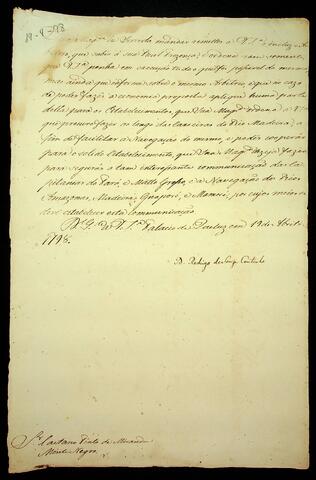 18-4-798
Mag.e he Servida mandar remetter a V. S.a
que sobe á sua Real Prezença: e ordena
que V. S.a ponha em execução tudo o q
mais ainda que informe sobre o mesmo Arbitrio, e que no cazo
de poder fazer a economia proposta aplique huma parte
della para os Estabelecimentos, que Sua Mag.e ordena a V. S.a
que promova fazer ao longo das caxoeiras do Rio Madeira, a
fim de facilitar a Navegação do mesmo, e poder cooperar
para o solido Estabelecimento, que Sua Mag.e dezeja fazer
para segurar a tam interessante communicação das Ca-
pitanias do Pará, e Matto Grosso, e a Navegação dos Rios
Amazonas, Madeira, Guaporé, e Mamoré, por cujos meios se
deve estabelecer esta communicação.
D.s G.e a V. S.a Palacio de Queluz em 18 de Abril
1798.
D. Rodrigo de Souza Coutinho
S.r Caetano Pinto de Miranda
Monte Negro.